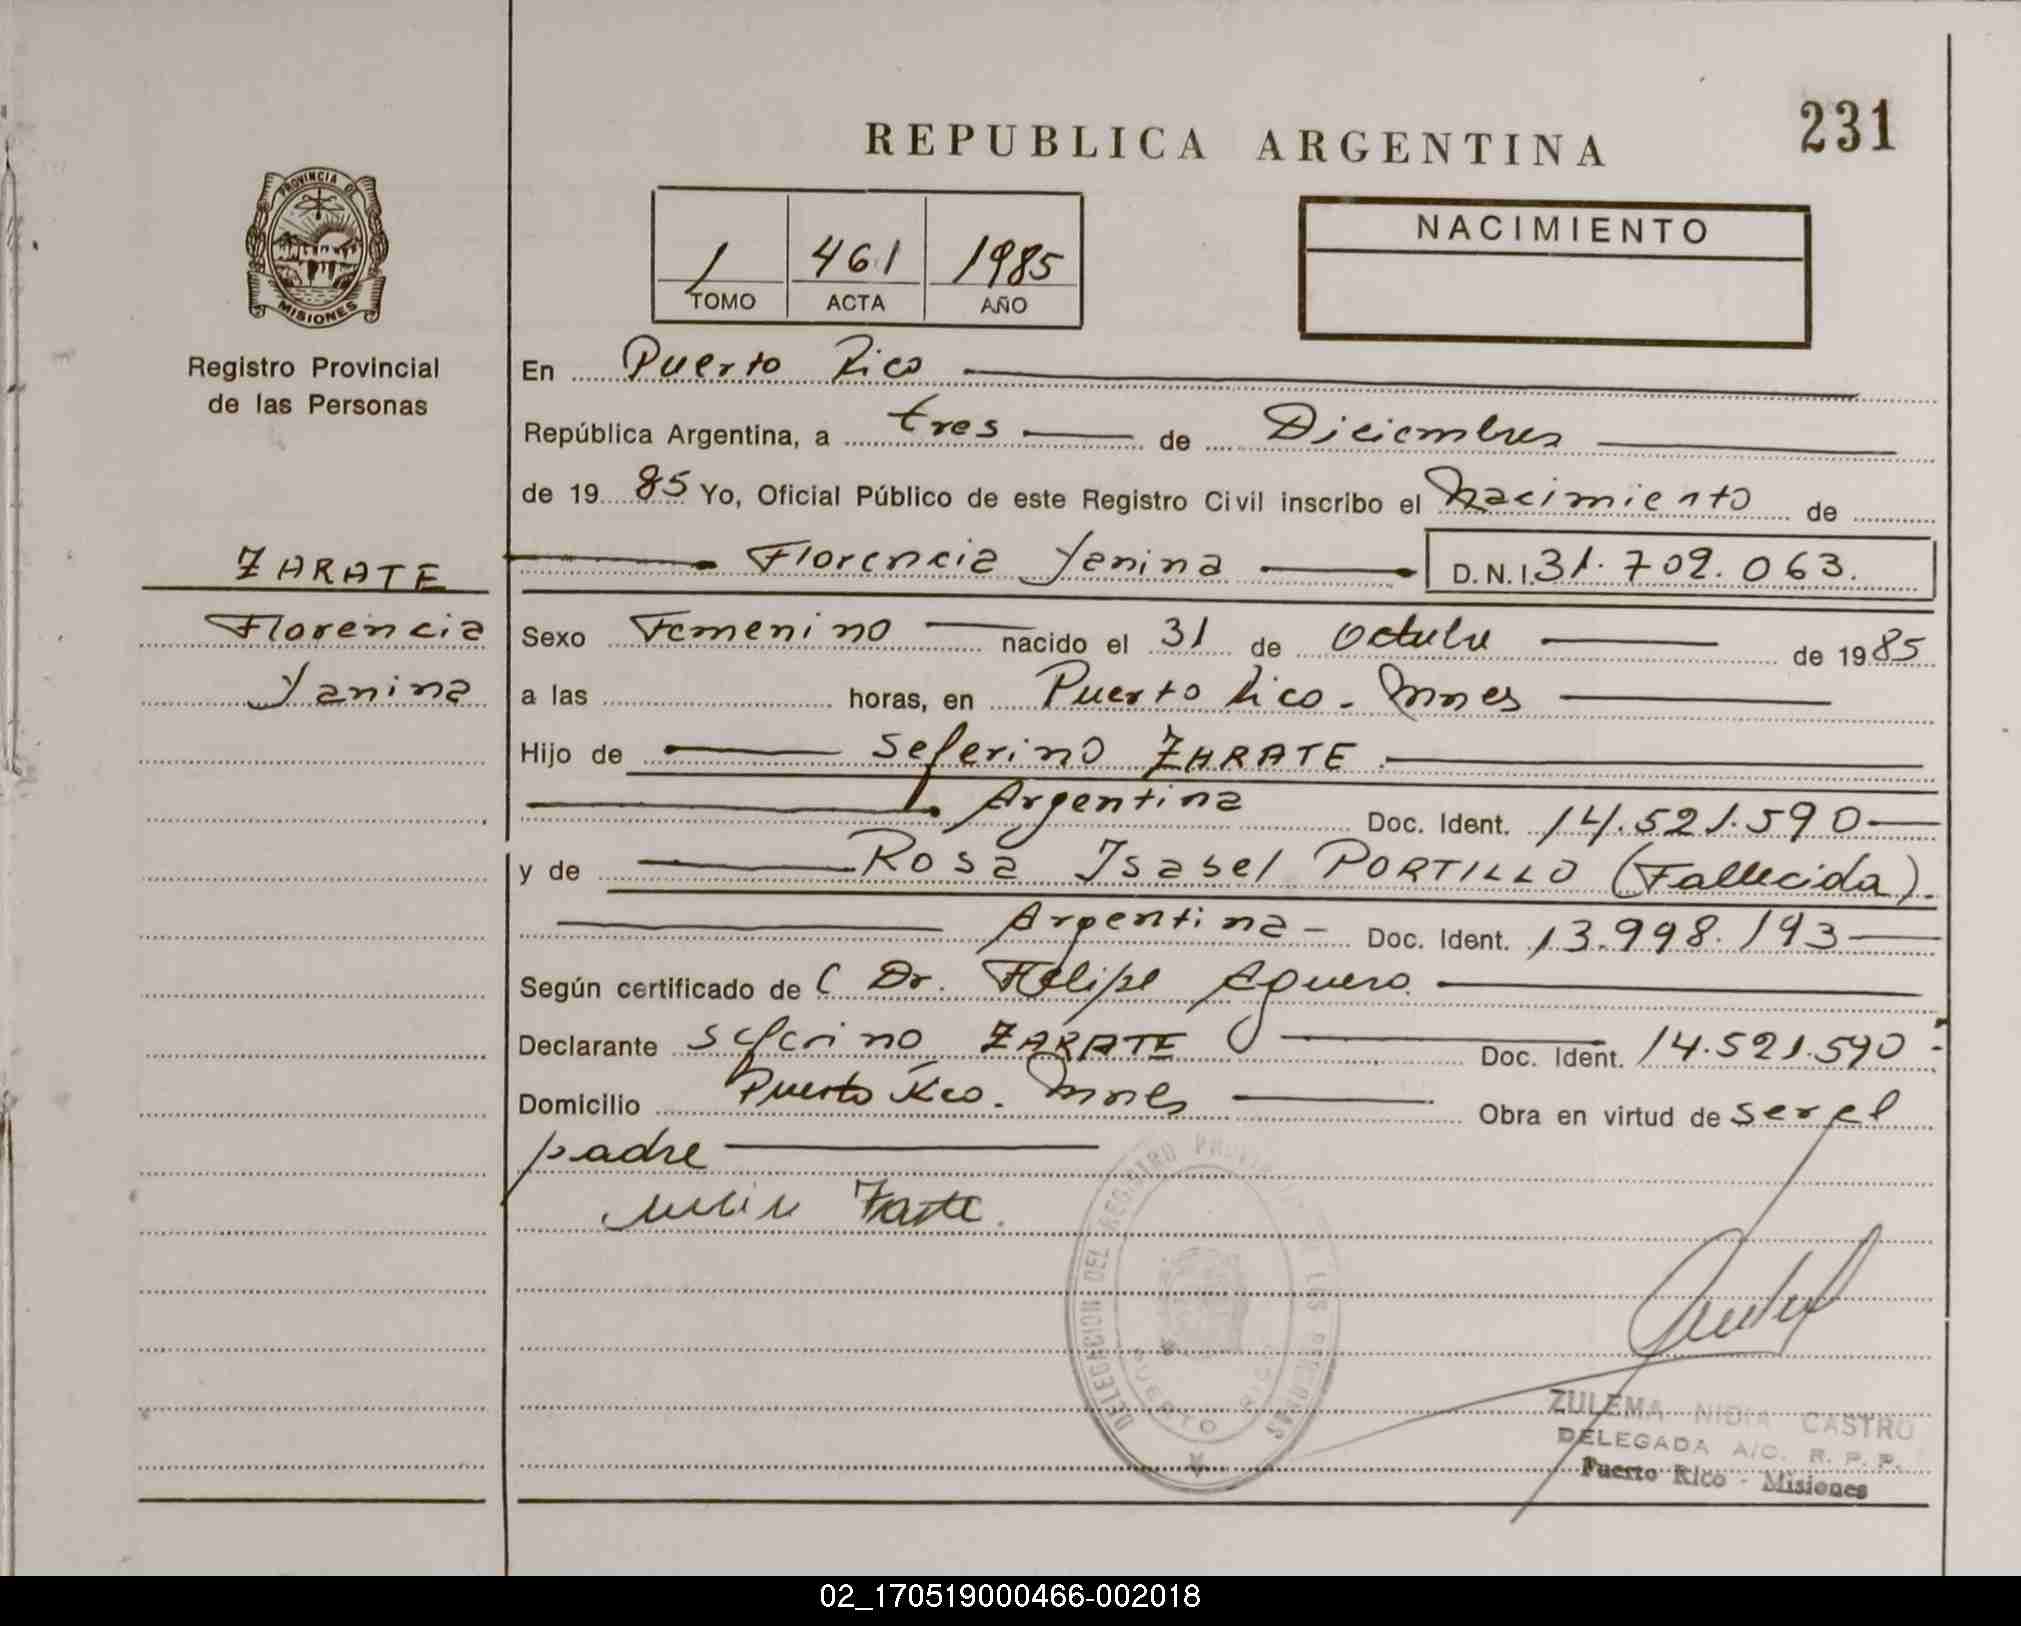 REPUBLICA ARGENTINA
231
PROVINCIA DE
MISIONES
Registro Provincial
de las Personas
1 461 1985
TOMO ACTA AÑO
NACIMIENTO
En Puerto Rico
República Argentina, a tres de Diciembre
de 1985 Yo, Oficial Público de este Registro Civil inscribo el Nacimiento de
ZARATE
Florencia Yanina D.N.I. 31.702.063.
Florencia
Sexo Femenino nacido el 31 de Octubre de 1985
Yanina
a las horas, en Puerto Rico - Mnes
Hijo de Seferino ZARATE
Argentina Doc. Ident. 14.521.590
y de Rosa Isabel PORTILLO (Fallecida).
Argentina - Doc. Ident. 13.998.193
Según certificado de Dr. Felipe Aguero.
Declarante Seferino ZARATE Doc. Ident. 14.521.590
Domicilio Puerto Rico. Mnes Obra en virtud de ser el
padre
DELEGACION DEL REGISTRO PROVINCIAL DE LAS PERSONAS
PUERTO RICO
ZULEMA NIDIA CASTRO
DELEGADA A/C. R. P. P.
Puerto Rico - Misiones
02_170519000466-002018